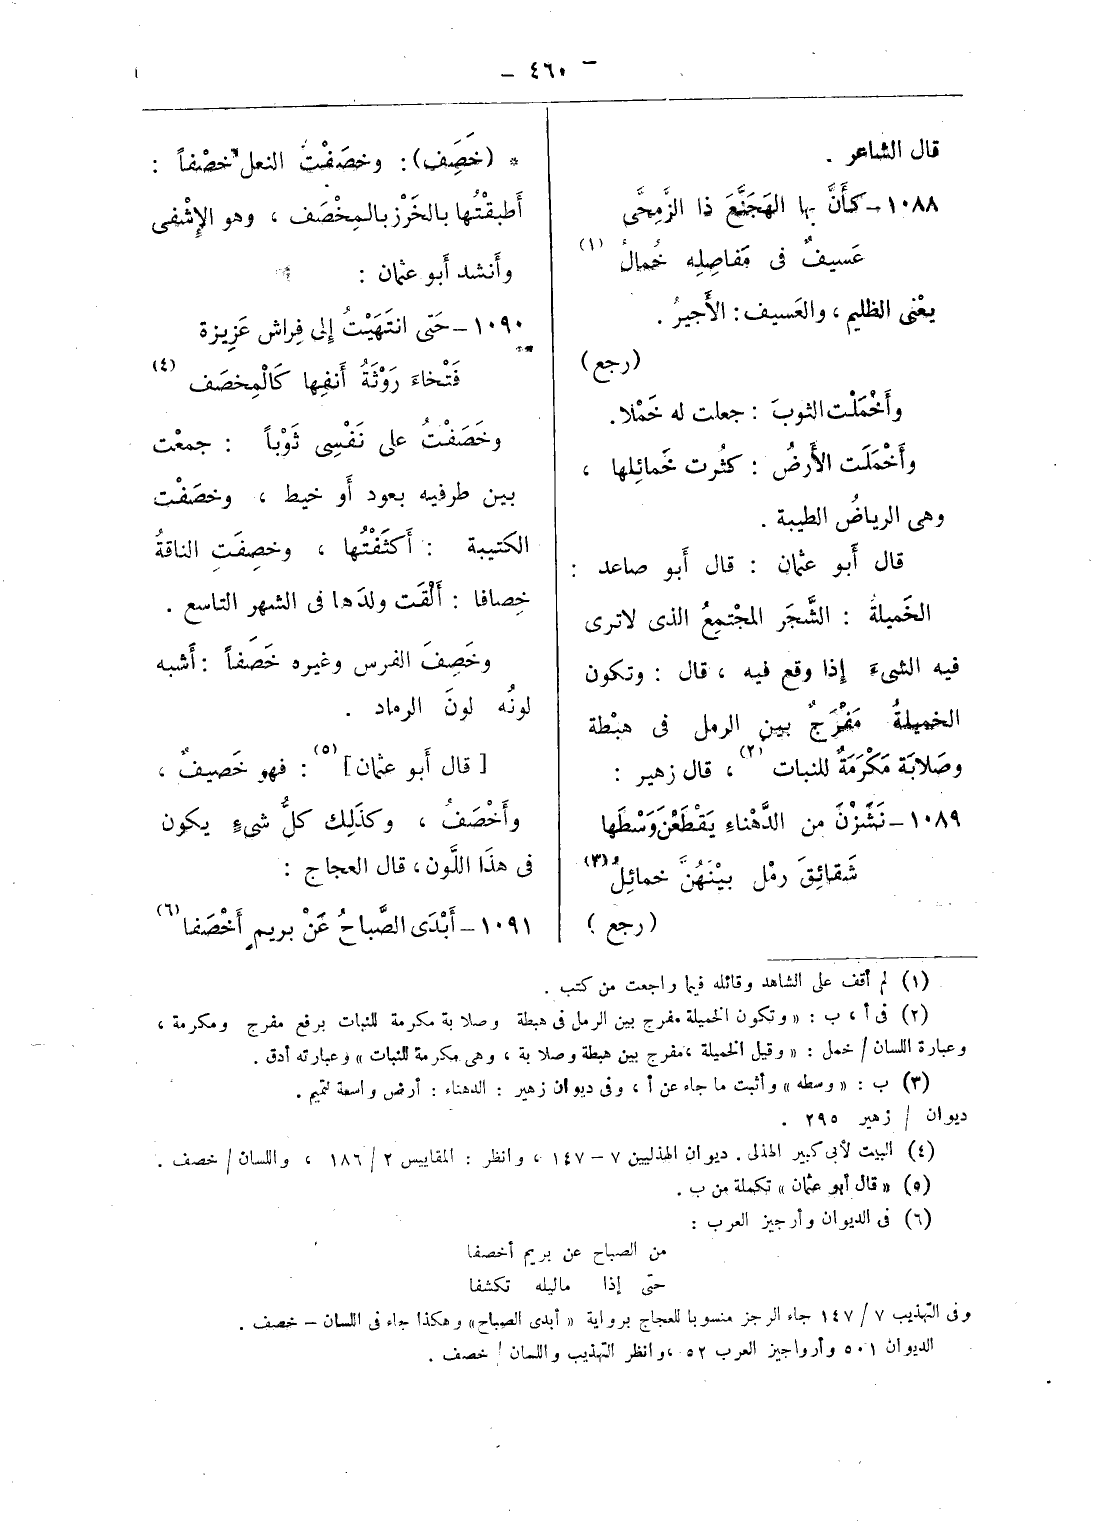 – ٤٦٠ –
قال الشاعر .
١٠٨٨ – كأَنَّ بها الهَجَنَّعَ ذا الزَّمِحَّى
عَسيفٌ فى مَفاصِلِه خُمالُ (١)
يعْنى الظليم ، والعَسيف : الأَجيرُ .
(رجع)
وأَخْمَلْت الثوبَ : جعلت له خَمْلا.
وأَخْمَلَت الأَرضُ : كثُرت خَمائِلها ،
وهى الرياضُ الطيبة .
قال أَبو عثمان : قال أَبو صاعد :
الخَميلةُ : الشَّجَر المجْتمِعُ الذى لاترى
فيه الشىءَ إذا وقع فيه ، قال : وتكون
الخميلةُ مَفْرَجٌ بين الرمل فى هبْطة
وصَلابَة مَكْرَمَةٌ للنبات (٢) ، قال زهير :
١٠٨٩ – نَشَزْنَ من الدَّهْناءِ يَقْطَعْنَ وَسْطَها
شَقائِقَ رمْل بيْنَهُنَّ خمائِلُ (٣)
(رجع)
* (خَصَِف) : وخصَفْتُ النعل خصْفاً :
أَطبقْتُها بالخَرْز بالمِخْصَف ، وهو الإِشْفى
وأَنشد أَبو عثمان :
١٠٩٠ – حَتى انتَهَيْتُ إلى فِراش عَزِيزة
فَتْخاءَ رَوْثَةُ أَنفِها كَالْمِخصَف (٤)
وخَصَفْتُ على نَفْسِى ثَوْباً : جمعْت
بين طرفيه بعود أَو خيط ، وخصَفْت
الكتيبة : أَكثَفْتُها ، وخصِفَتِ الناقةُ
خِصافا : أَلْقَت ولدَها فى الشهر التاسع .
وخَصِفَ الفرس وغيره خَصَفاً : أَشبه
لونُه لونَ الرماد .
[ قال أَبو عثمان ] (٥) : فهو خَصيفٌ ،
وأَخْصَفُ ، وكذَلِك كلُّ شىءٍ يكون
فى هذَا اللَّون ، قال العجاج :
١٠٩١ – أَبْدَى الصَّباحُ عَنْ بريم أَخْصَفا (٦)
(١) لم أقف على الشاهد وقائله فيما راجعت من كتب .
(٢) فى أ ، ب : « وتكون الخميلة مفرج بين الرمل فى هبطة وصلابة مكرمة للنبات برفع مفرج ومكرمة ،
وعبارة اللسان / خمل : « وقيل الخميلة ، مفرج بين هبطة وصلابة ، وهى مكرمة للنبات » وعبارته أدق .
(٣) ب : « وسطه » وأثبت ما جاء عن أ ، وفى ديوان زهير : الدهناء : أرض واسعة لتميم .
ديوان / زهير ٢٩٥ .
(٤) البيت لأبى كبير الهذلى . ديوان الهذليين ٧ – ١٤٧ ، وانظر : المقاييس ٢ / ١٨٦ ، واللسان / خصف .
(٥) « قال أبو عثمان » تكملة من ب .
(٦) فى الديوان وأرجيز العرب :
من الصباح عن بريم أخصفا
حتى إذا ماليله تكشفا
وفى التهذيب ٧ / ١٤٧ جاء الرجز منسوبا للعجاج برواية « أبدى الصباح » وهكذا جاء فى اللسان – خصف .
الديوان ٥٠١ وأرواجيز العرب ٥٢ ، وانظر التهذيب واللسان / خصف .